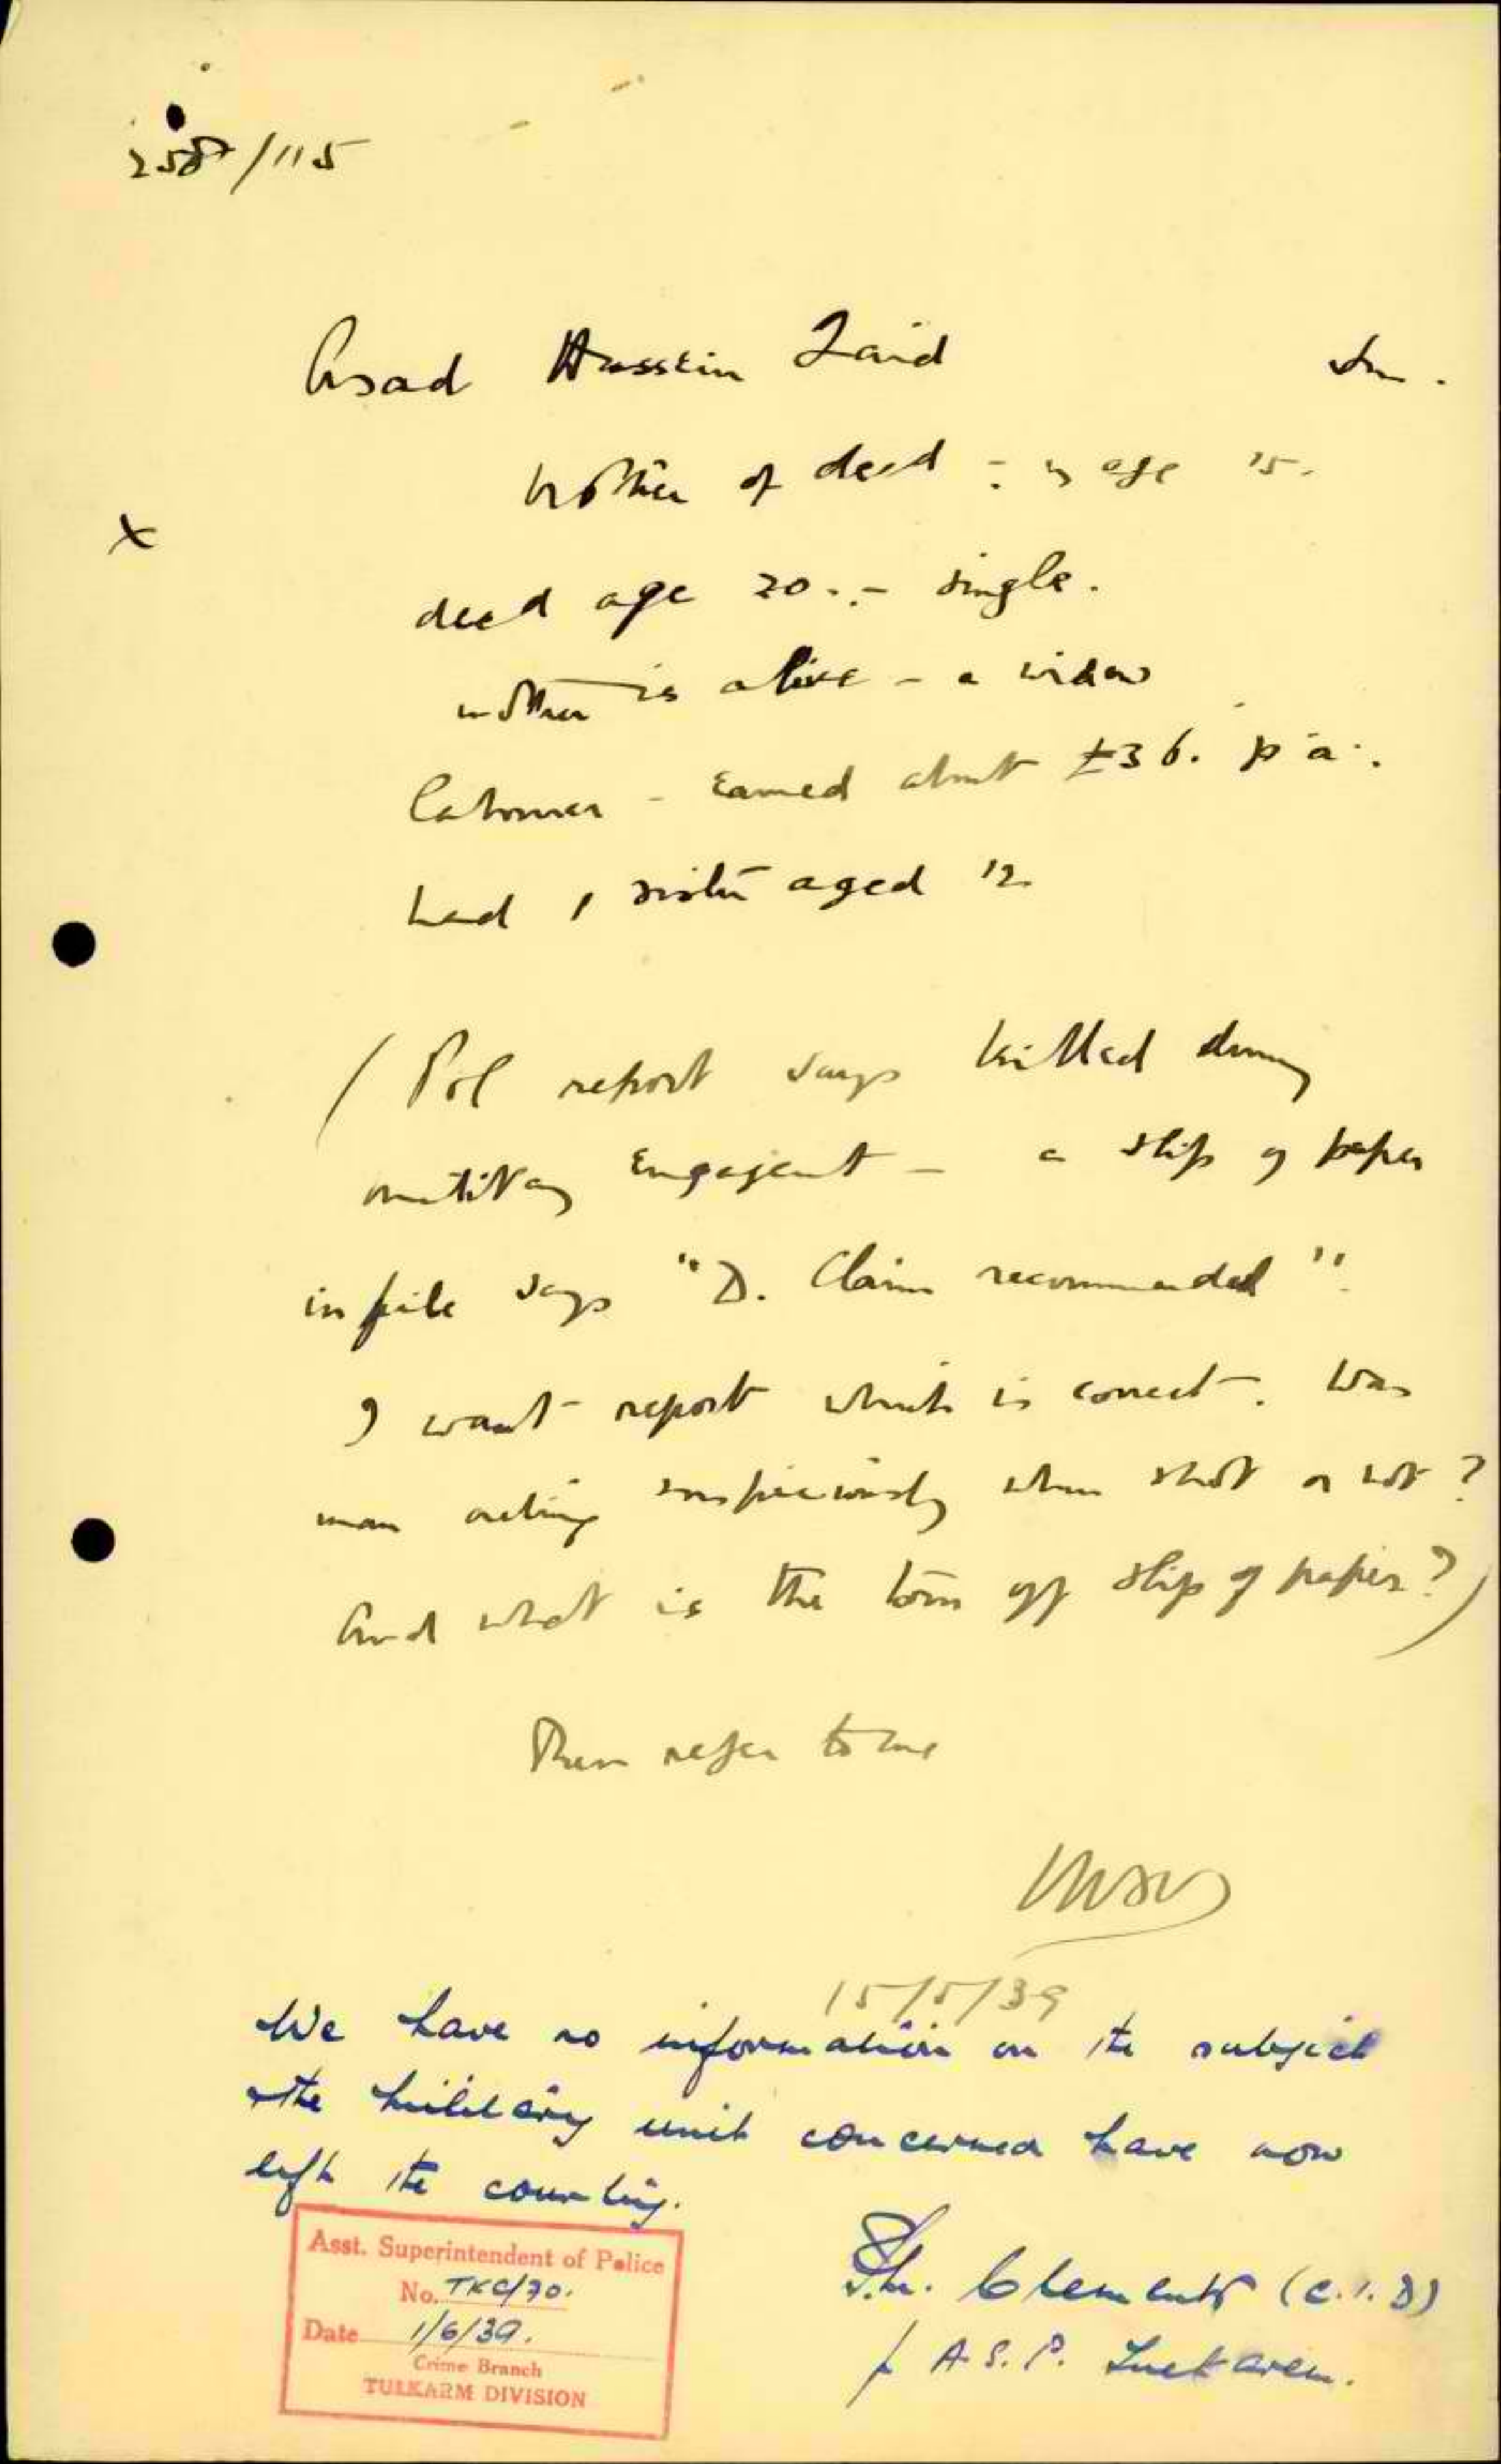 258/115
Asad Hussein Zaid
brother of decd - is age 15.
decd age 20 .- single.
mother is alive - a widow
labourer - earned about £36. p.a.
had 1 sister aged 12
(Pol report says killed during
military engagement - a slip of paper
in file says "D. Claim recommended".
I want report which is correct. Was
man acting suspiciously when shot or not?
And what is the torn off slip of paper?)
Then refer to me
15/5/39
We have no information on the subject
the military unit concerned have now
left the country.
Clements (C.I.D)
f A.S.P. Tulkarem.
Asst. Superintendent of Police
No. TKC/70.
Date 1/6/39.
Crime Branch
TULKARM DIVISION